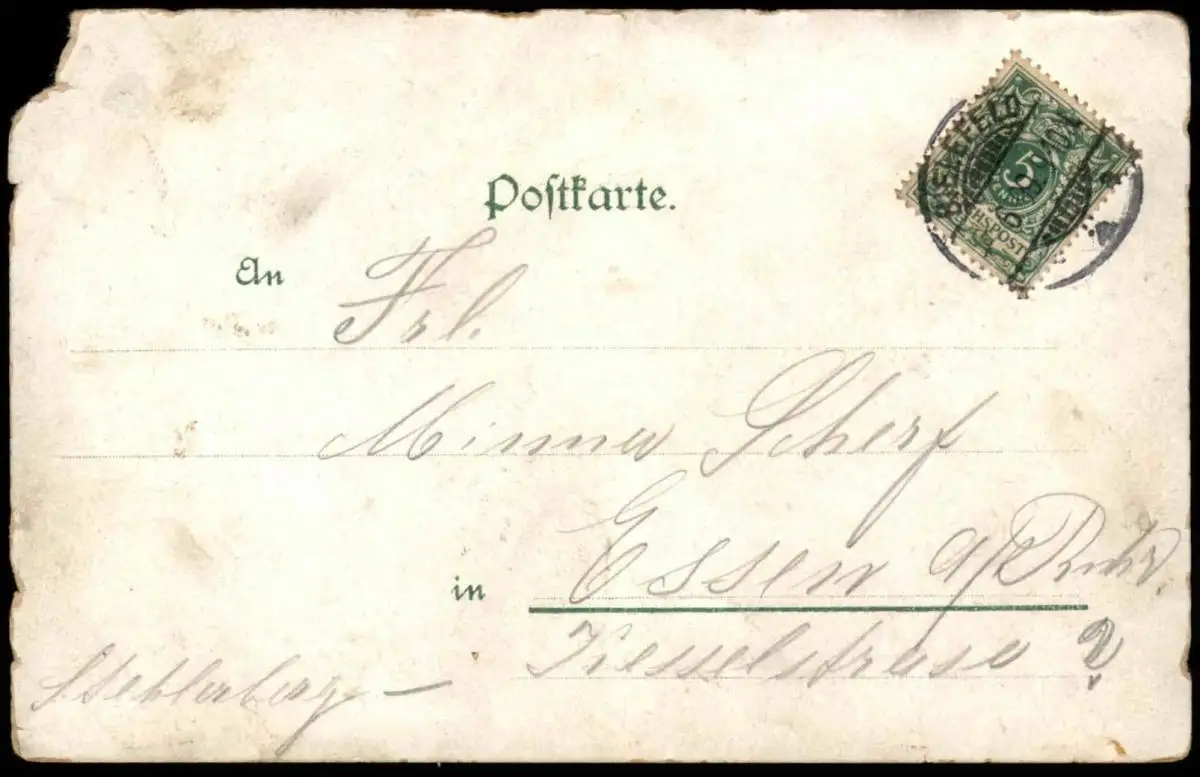 Postkarte.
BIELEFELD
5
REICHSPOST
An Frl.
Minna Scherf
in Essen a/Ruhr
Kesselstrase 2